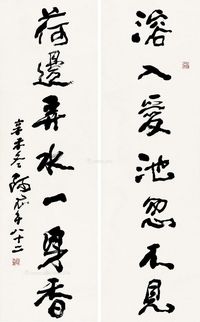 溶入愛池忽不見
荷邊弄水一身香
辛未冬 年八十二